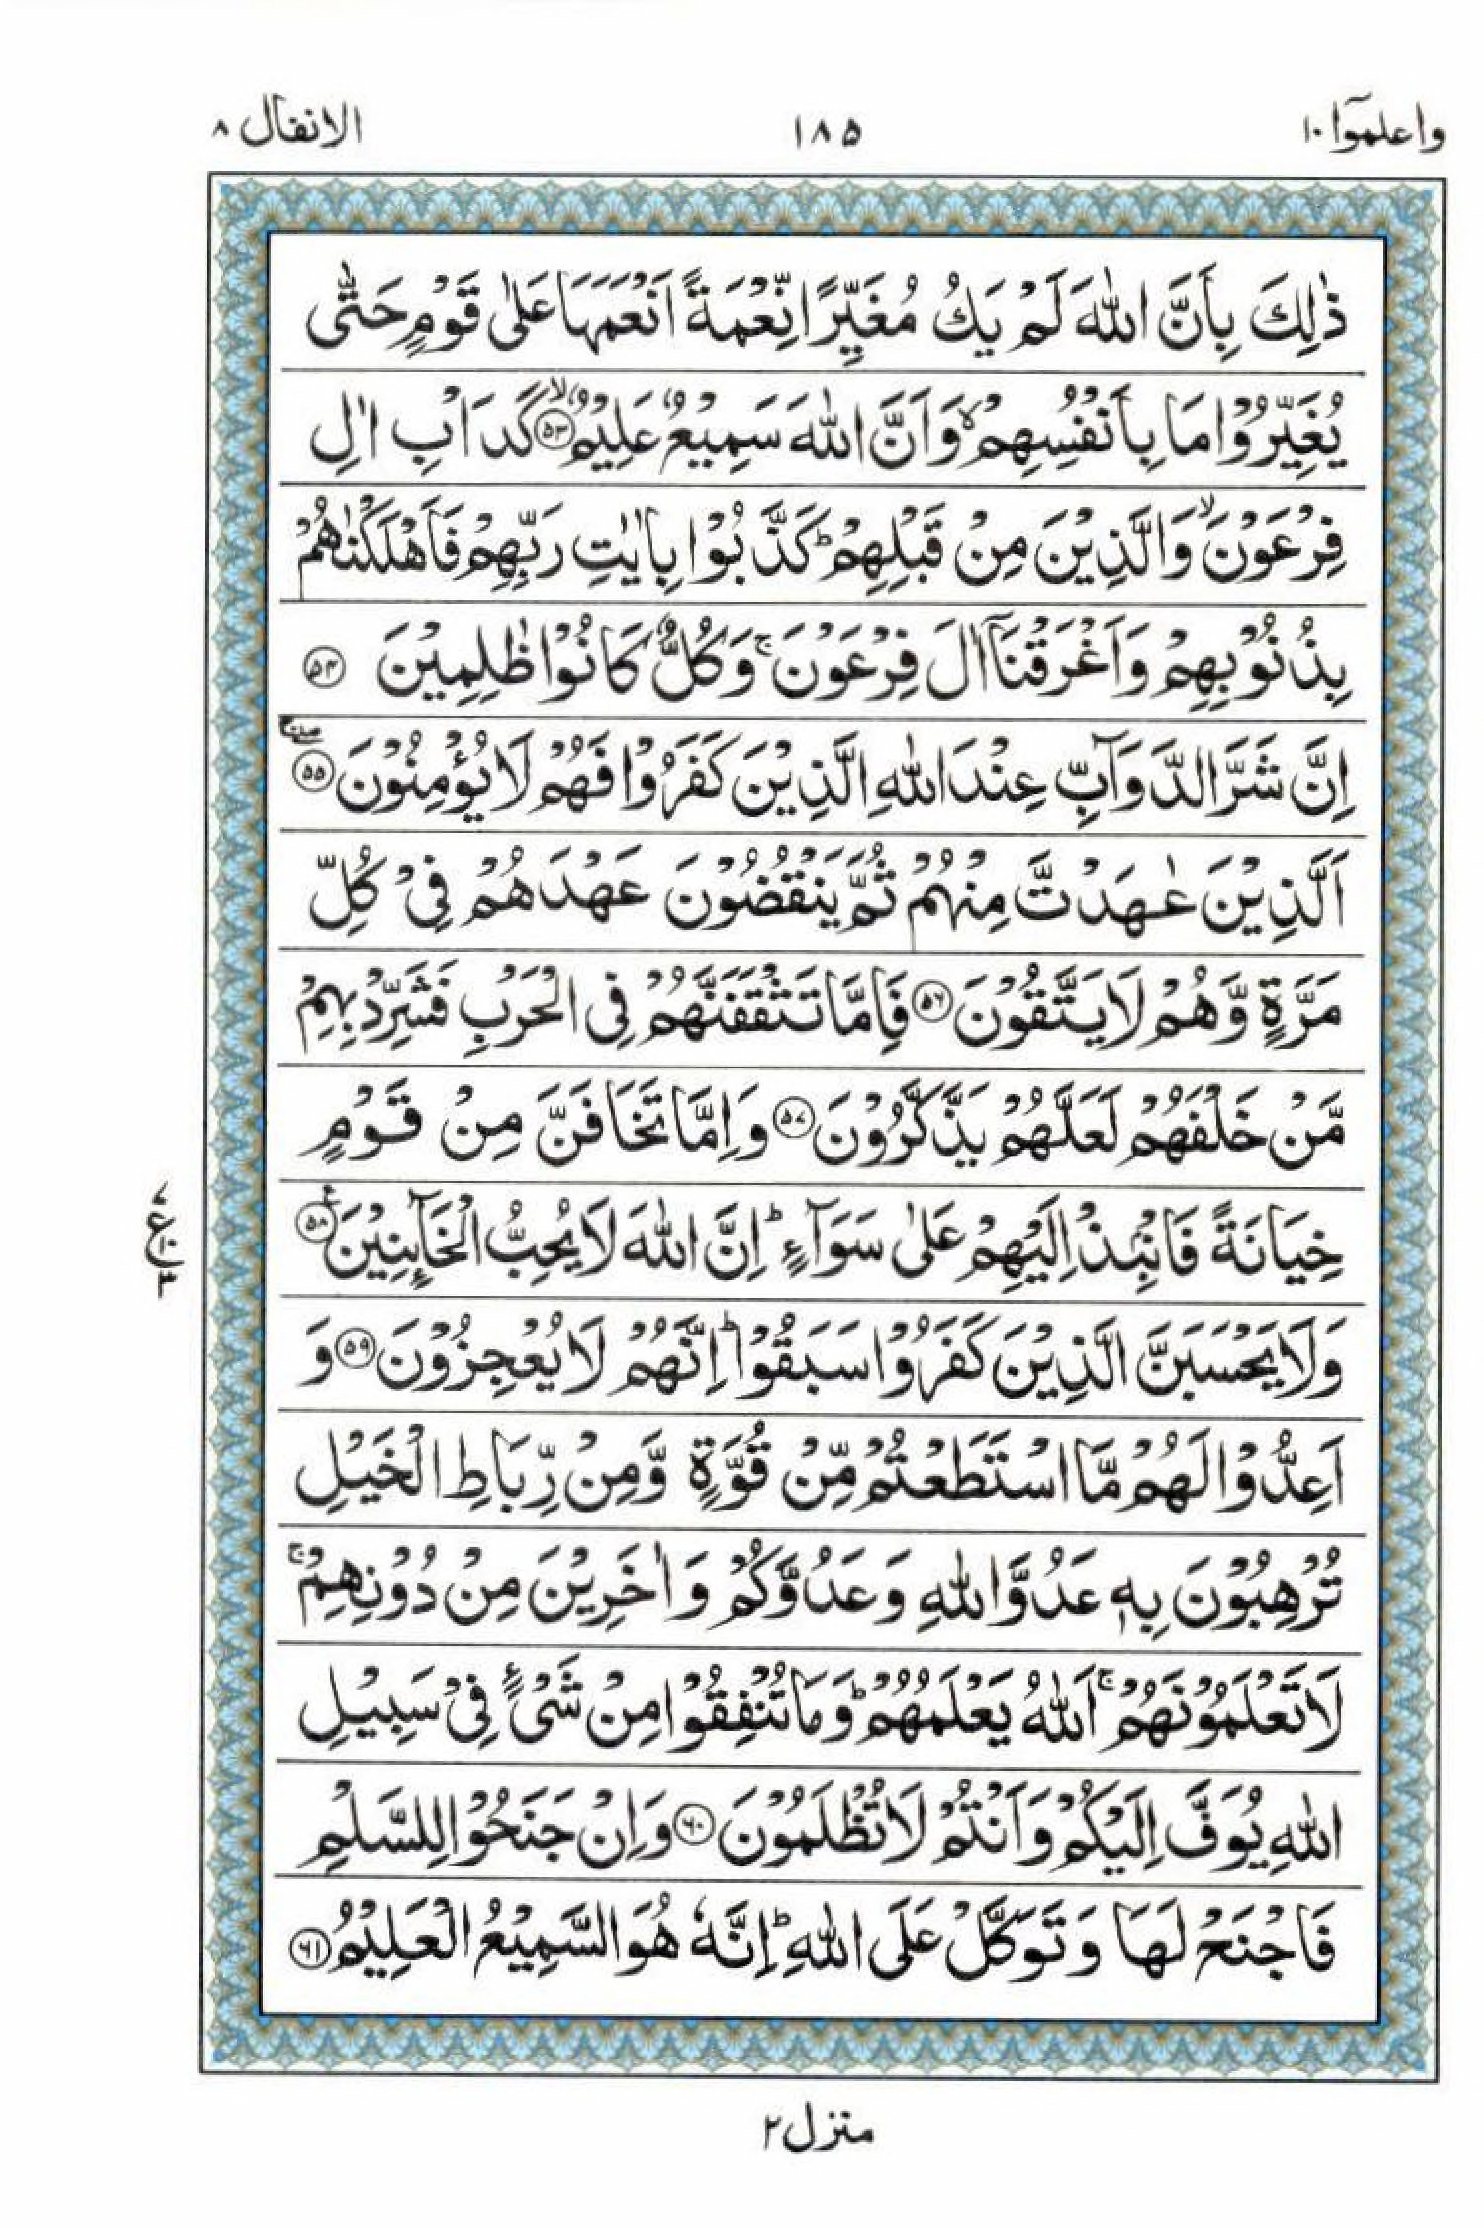 واعلموٓا ۱۰
۱۸۵
الانفال ۸
ذٰلِكَ بِاَنَّ اللّٰهَ لَمْ يَكُ مُغَيِّرًا نِّعْمَةً اَنْعَمَهَا عَلٰى قَوْمٍ حَتّٰى
يُغَيِّرُوْا مَا بِاَنْفُسِهِمْ ۙ وَاَنَّ اللّٰهَ سَمِيْعٌ عَلِيْمٌ ۙ﴿۵۳﴾ كَدَاْبِ اٰلِ
فِرْعَوْنَ ۙ وَالَّذِيْنَ مِنْ قَبْلِهِمْ ؕ كَذَّبُوْا بِاٰيٰتِ رَبِّهِمْ فَاَهْلَكْنٰهُمْ
بِذُنُوْبِهِمْ وَاَغْرَقْنَاۤ اٰلَ فِرْعَوْنَ ۚ وَكُلٌّ كَانُوْا ظٰلِمِيْنَ ﴿۵۴﴾
اِنَّ شَرَّ الدَّوَآبِّ عِنْدَ اللّٰهِ الَّذِيْنَ كَفَرُوْا فَهُمْ لَا يُؤْمِنُوْنَ ۖۚ﴿۵۵﴾
اَلَّذِيْنَ عٰهَدْتَّ مِنْهُمْ ثُمَّ يَنْقُضُوْنَ عَهْدَهُمْ فِيْ كُلِّ
مَرَّةٍ وَّهُمْ لَا يَتَّقُوْنَ ﴿۵۶﴾ فَاِمَّا تَثْقَفَنَّهُمْ فِي الْحَرْبِ فَشَرِّدْ بِهِمْ
مَّنْ خَلْفَهُمْ لَعَلَّهُمْ يَذَّكَّرُوْنَ ﴿۵۷﴾ وَاِمَّا تَخَافَنَّ مِنْ قَوْمٍ
خِيَانَةً فَانْۢبِذْ اِلَيْهِمْ عَلٰى سَوَآءٍ ؕ اِنَّ اللّٰهَ لَا يُحِبُّ الْخَآئِنِيْنَ ﴿۵۸﴾ ع
۷ ع ۳
وَلَا يَحْسَبَنَّ الَّذِيْنَ كَفَرُوْا سَبَقُوْا ؕ اِنَّهُمْ لَا يُعْجِزُوْنَ ﴿۵۹﴾ وَ
اَعِدُّوْا لَهُمْ مَّا اسْتَطَعْتُمْ مِّنْ قُوَّةٍ وَّمِنْ رِّبَاطِ الْخَيْلِ
تُرْهِبُوْنَ بِهٖ عَدُوَّ اللّٰهِ وَعَدُوَّكُمْ وَاٰخَرِيْنَ مِنْ دُوْنِهِمْ ۚ
لَا تَعْلَمُوْنَهُمْ ۚ اَللّٰهُ يَعْلَمُهُمْ ؕ وَمَا تُنْفِقُوْا مِنْ شَيْءٍ فِيْ سَبِيْلِ
اللّٰهِ يُوَفَّ اِلَيْكُمْ وَاَنْتُمْ لَا تُظْلَمُوْنَ ﴿۶۰﴾ وَاِنْ جَنَحُوْا لِلسَّلْمِ
فَاجْنَحْ لَهَا وَتَوَكَّلْ عَلَى اللّٰهِ ؕ اِنَّهٗ هُوَ السَّمِيْعُ الْعَلِيْمُ ﴿۶۱﴾
منزل ۲